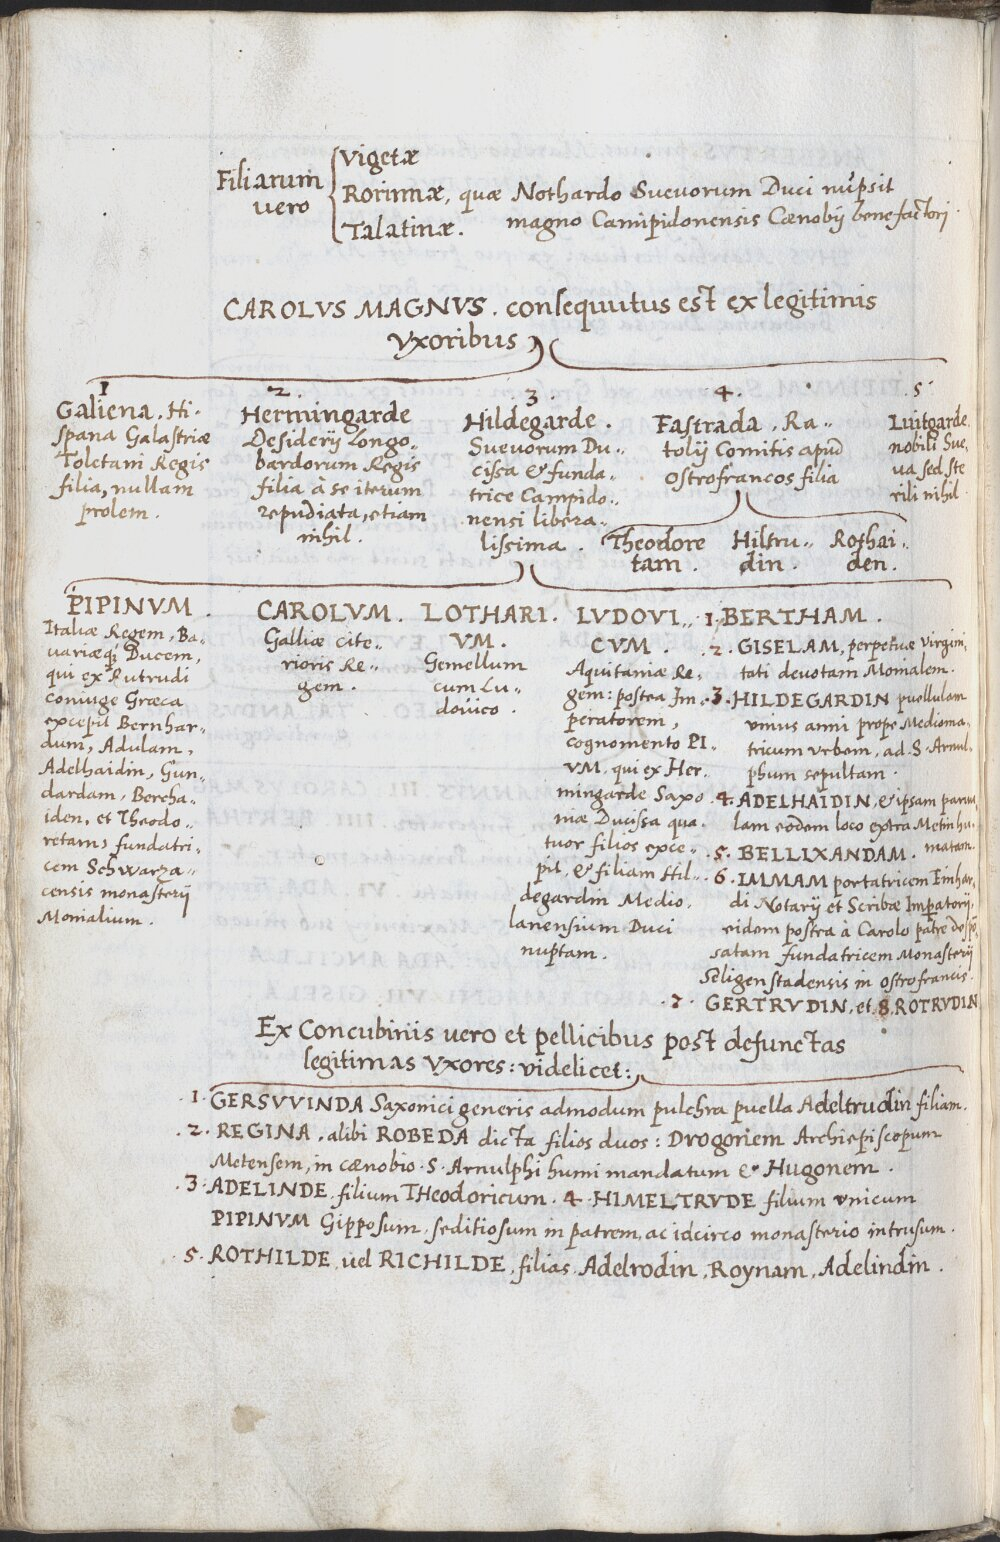 Filiarum vero
Vigetæ
Rorinnæ, quæ Nothardo Suevorum Duci nupsit
magno Campidonensis Cænobij benefactori.
Talatinæ.
CAROLVS MAGNVS. consequutus est ex legitimis
vxoribus
1
Galiena, Hi-
spana Galastriæ
Toletani Regis
filia, nullam
prolem.
2.
Hermingarde
Desiderij Longo„
bardorum Regis
filia à se iterum
repudiata, etiam
nihil.
3
Hildegarde.
Suevorum Du„
cissa & funda„
trice Campido„
nensi libera„
lissima.
4.
Fastrada, Ra„
tolij Comitis apud
Ostrofrancos filia
Theodore
tam.
Hiltru„
din.
Rothai„
den.
5
Luitgarde
nobili Sue,
va sed ste
rili nihil
PIPINVM.
Italiæ Regem, Ba„
variæq; Ducem,
qui ex Rutrudi
coniuge Græca
excepit Bernhar„
dum, Adulam,
Adelhaidin, Gun„
dardam, Bercha„
iden, et Theodo„
retam, fundatri„
cem Schwarza„
censis monasterij
Monialium.
CAROLVM.
Galliæ cite„
rioris Re„
gem.
LOTHARI.
VM.
Gemellum
cum Lu„
dovico.
LVDOVI„
CVM.
Aquitaniæ Re„
gem: postea Im„
peratorem,
cognomento PI„
VM, qui ex Her„
mingarde Saxo
niæ Ducissa qua„
tuor filios exce„
pit, & filiam Hil„
degardin Medio„
lanensium Duci
nuptam.
1. BERTHAM.
.2. GISELAM, perpetuæ Virgini„
tati devotam Monialem.
.3. HILDEGARDIN puellulam
vnius anni prope Medioma„
tricum vrbem, ad S. Arnul„
phum sepultam.
.4. ADELHAIDIN, & ipsam parvu„
lam eodem loco extra Metin hu„
matam.
.5. BELLIXANDAM.
.6. IMMAM portatricem Einhar„
di Notarij et Scribæ Imperatorij,
eidem postea à Carolo patre despō„
satam fundatricem Monasterij
Seligenstadensis in Ostrofrancis.
.7. GERTRVDIN, et 8. ROTRVDIN
Ex Concubinis vero et pellicibus post defunctas
legitimas Vxores: videlicet:
.1. GERSVVINDA Saxonici generis admodum pulchra puella Adeltrudin filiam.
.2. REGINA, alibi ROBEDA dicta filios duos: Drogonem Archiepiscopum
Metensem, in cænobio .S. Arnulphi humi mandatum & Hugonem.
.3. ADELINDE, filium THeodoricum. 4. HIMELTRVDE filium vnicum
PIPINVM Gipposum, seditiosum in patrem, ac idcirco monasterio intrusum.
.5. ROTHILDE, vel RICHILDE, filias, Adelrodin, Roynam, Adelindin.